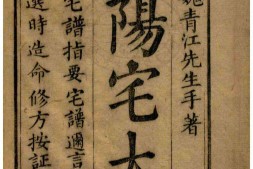 魏青江先生手著
陽宅大
宅譜指要宅譜邇言
選時造命修方按証